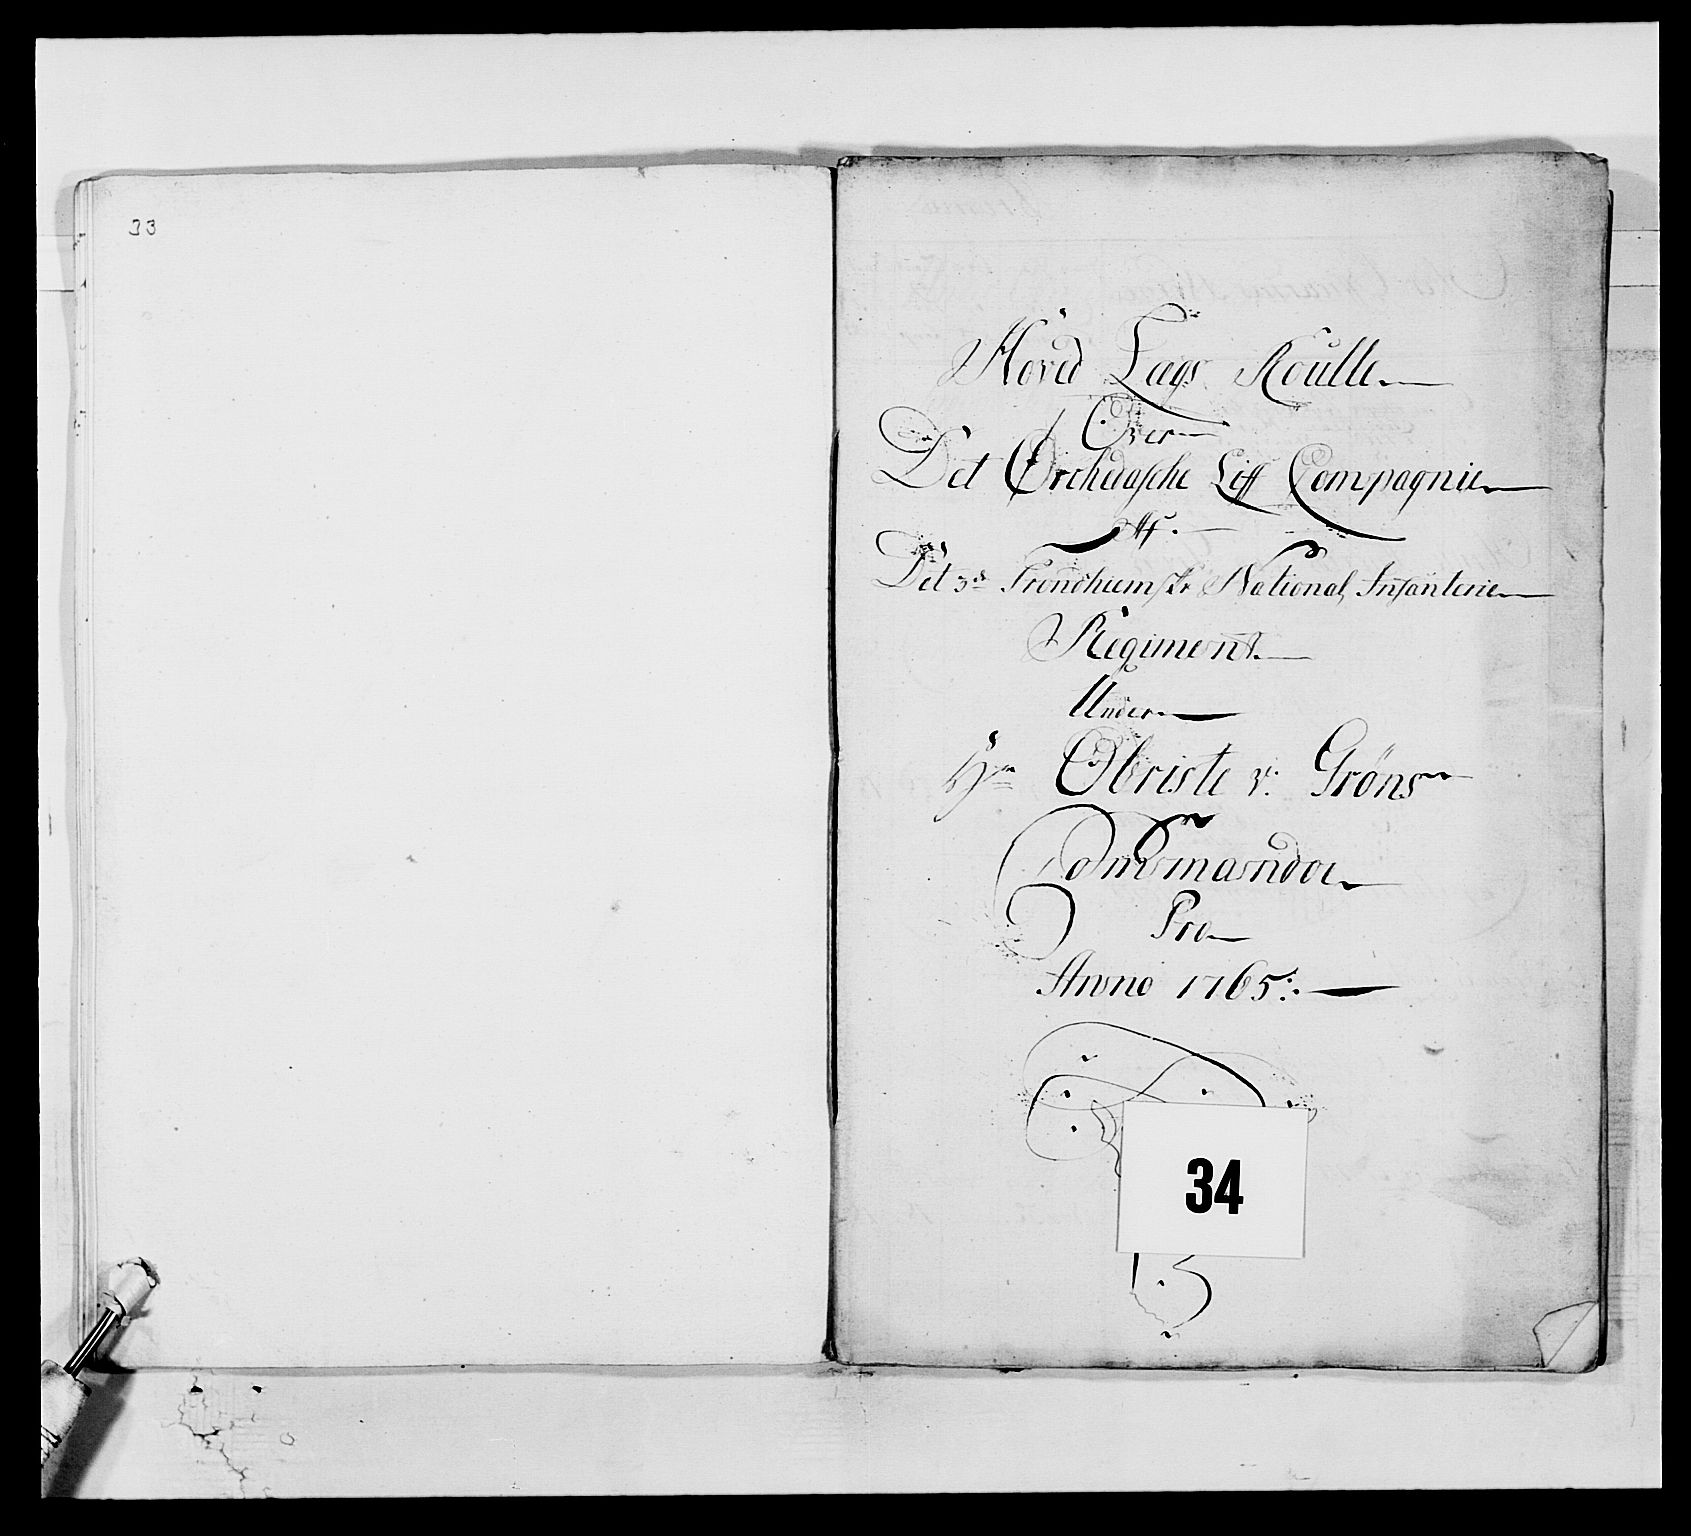 33
Hoved Lægs Roulle
Over
Det Ørchedalsche Liff Compagnie
Aff
Det 3d Trondhiemske National Infanterie
Regiment
Under
Hr Obriste v. Grøns
Commando
Pro
Anno 1765
34